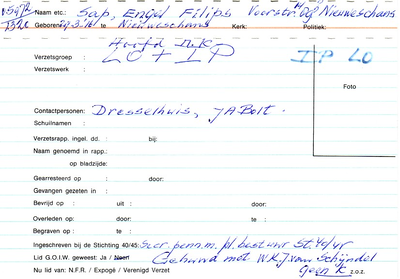 Naam etc.: Sap, Engel Filips Voorstr. Nieuweschans
Geboren: te Nieuweschans Kerk: Politiek:
Hoofd
Verzetsgroep : LO + IP
IP LO
Verzetswerk :
Foto
Contactpersonen: Dresselhuis, JA Bolt.
Schuilnamen :
Verzetsrapp. ingel. dd. : bij:
Naam genoemd in rapp.:
op bladzijde:
Gearresteerd op : door:
Gevangen gezeten in :
Bevrijd op : uit : door:
Overleden op: te: door:
Begraven op : te :
Ingeschreven bij de Stichting 40/45: Secr. penn.m. pl. bestuur St. 40/45
Lid G.O.I.W. geweest: Ja / Neen Gehuwd met W.K.J. van Schijndel
Nu lid van: N.F.R. / Expogé / Verenigd Verzet Geen K z.o.z.